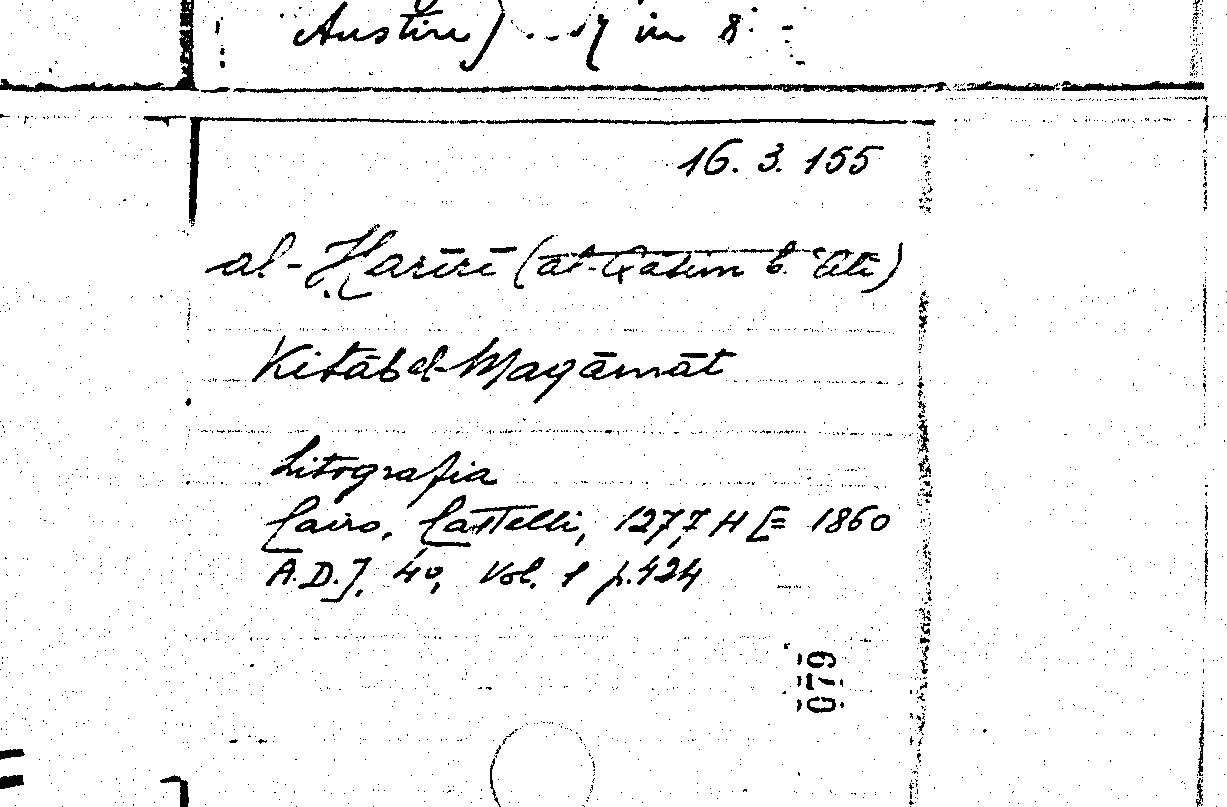 Austin) . . . in 8.º -
16. 3. 155
al-Ḥarīrī (al-Qāsim b. ʿAlī)
Kitāb al-Maqāmāt
Litografia
Cairo, Castelli, 1277 H [= 1860
A.D.], 4º, Vol. 1 p. 424
079